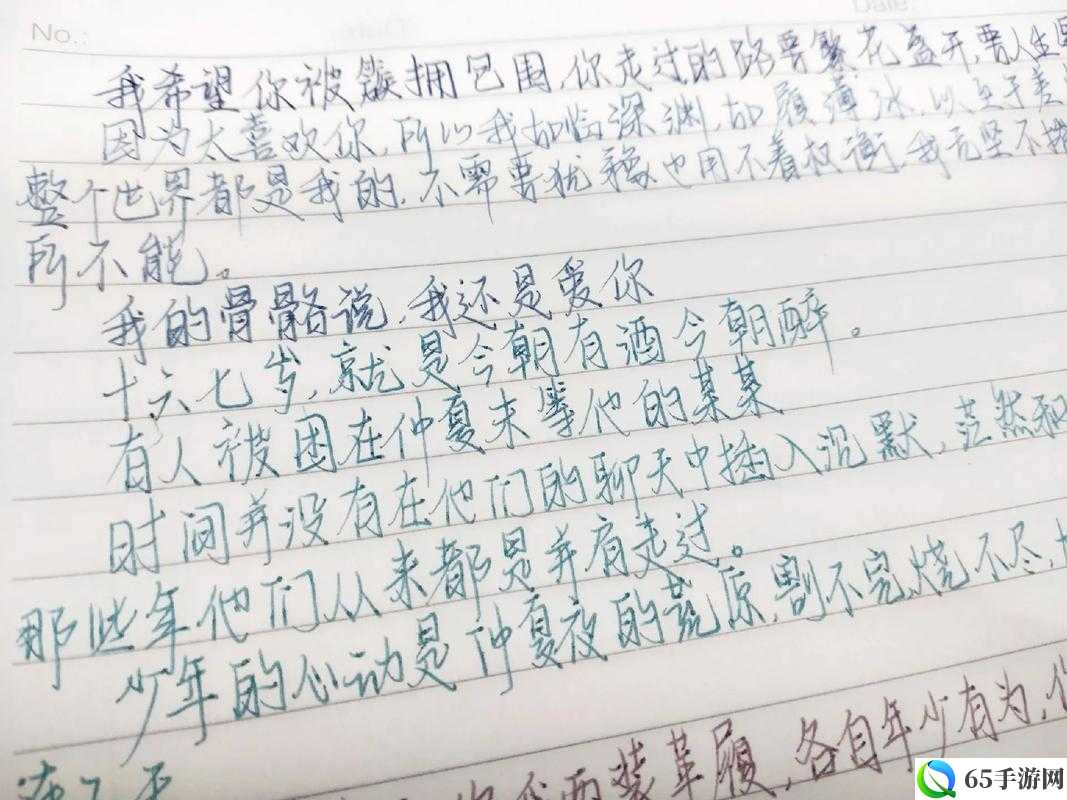 No.:
Date:
我希望你被簇拥包围,你走过的路要繁花盛开,要人生
因为太喜欢你,所以我如临深渊,如履薄冰,以至于
整个世界都是我的,不需要犹豫也用不着权衡,我无坚不
所不能。
我的骨骼说,我还是爱你
十六七岁,就是今朝有酒今朝醉。
有人被困在仲夏末等他的某某
时间并没有在他们的聊天中插入沉默,茫然和
那些年他们从来都是并肩走过。
少年的心动是仲夏夜的荒原,割不完烧不尽,
我西装革履,各自年少有为,
65手游网